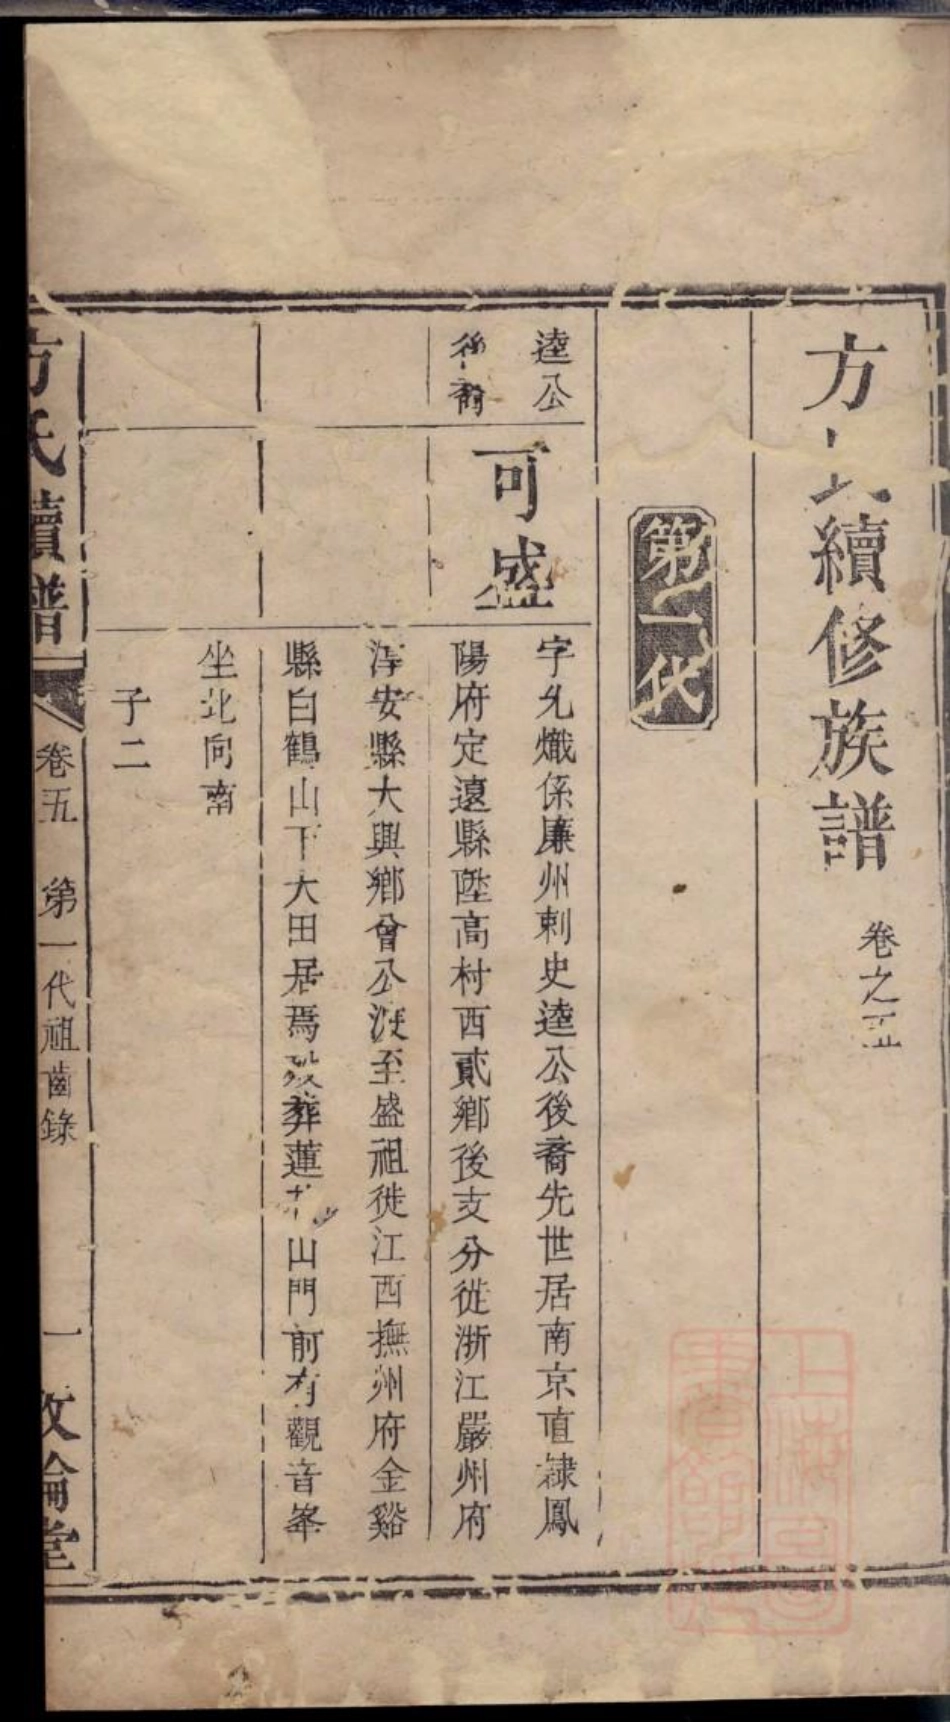 方氏續修族譜 卷之五
第一代
逵公
後裔
可盛
字允熾係廉州刺史逵公後裔先世居南京直隸鳳
陽府定遠縣陞高村西貳鄉後支分徙浙江嚴州府
淳安縣大興鄉曾公派至盛祖徙江西撫州府金谿
縣白鶴山下大田居焉 葬蓮 山門前有觀音峯
坐北向南
子二
方氏續譜 卷五 第一代祖齒錄 一 敦倫堂